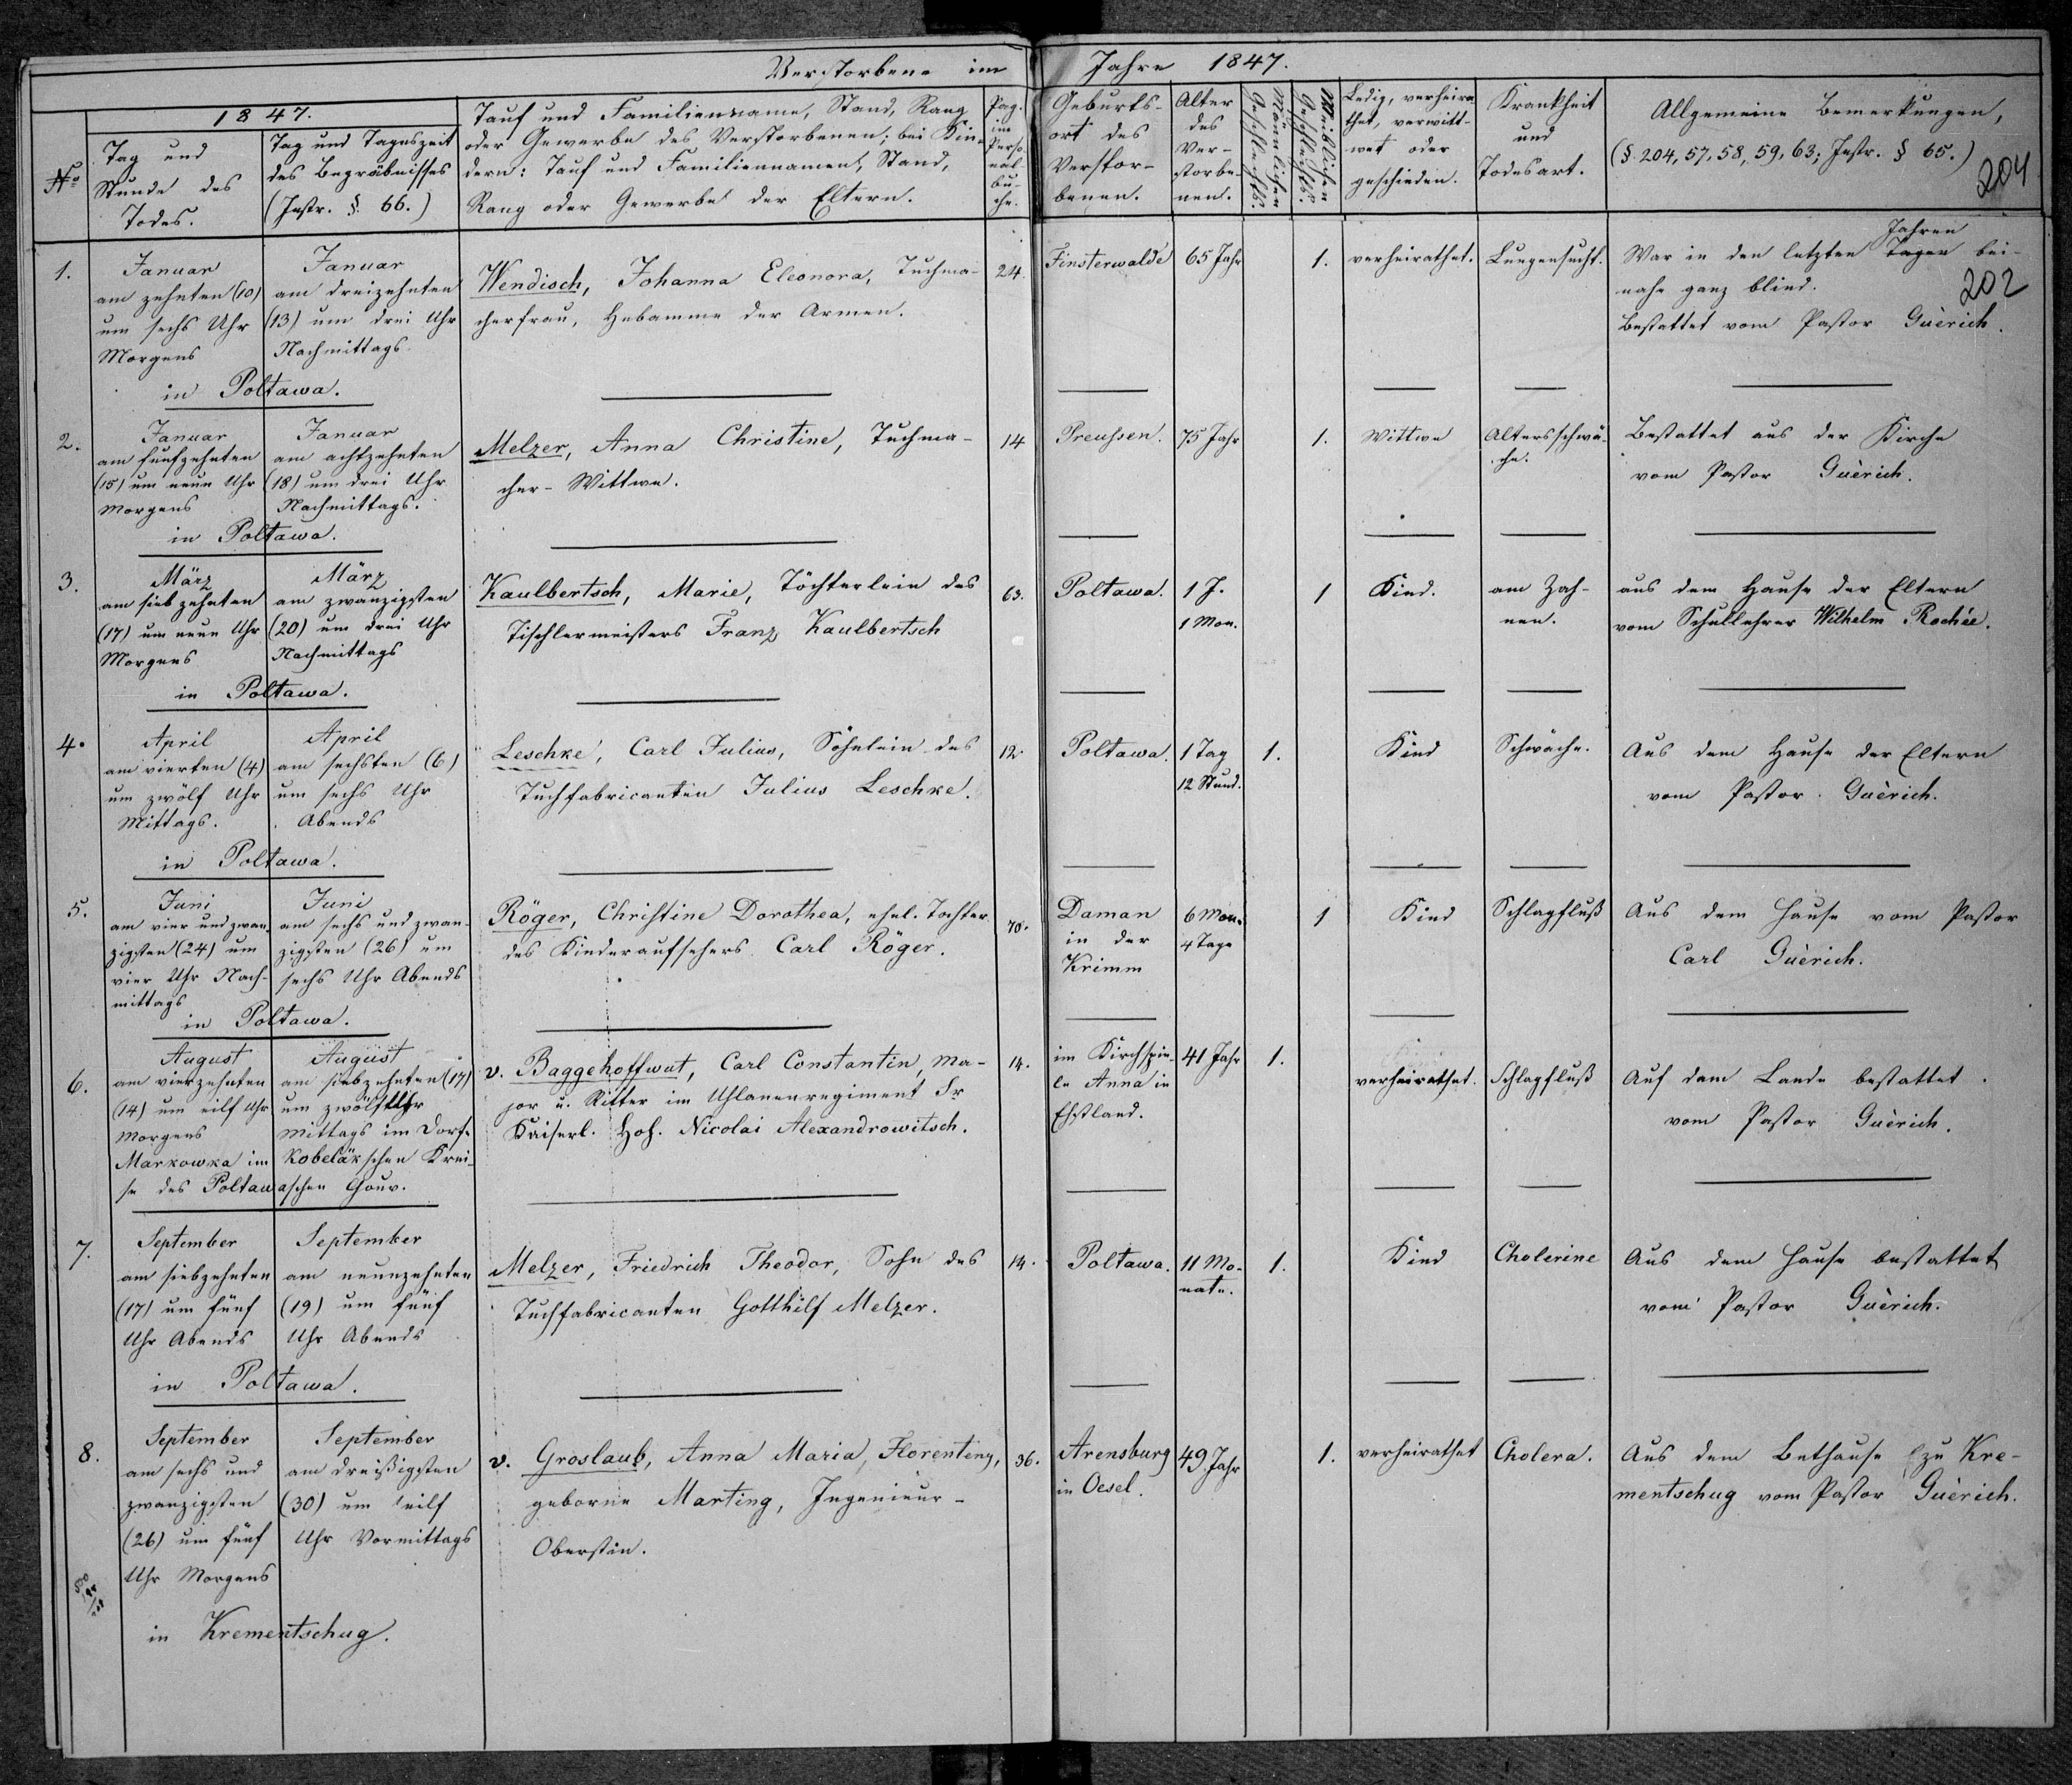 Verstorbene im Jahre 1847.
204
202
No
1847.
Tag und
Stunde des
Todes.
Tag und Tageszeit
des Begräbnisses
(Instr. §. 66.)
Tauf und Familienname, Stand, Rang
oder Gewerbe des Verstorbenen; bei Kin-
dern: Tauf und Familiennamen, Stand,
Rang oder Gewerbe der Eltern.
Pag.
im
Perso-
nal-
bu-
che.
Geburts-
ort des
Verstor-
benen.
Alter
des
Ver-
storbe-
nen.
Männlichen
Geschlechts.
Weiblichen
Geschlechts.
Ledig, verheira-
thet, verwitt-
wet oder
geschieden.
Krankheit
und
Todesart.
Allgemeine Bemerkungen,
(§ 204, 57, 58, 59, 63; Instr. § 65.)
1.
Januar
am zehnten (10)
um sechs Uhr
Morgens
Januar
am dreizehnten
(13) um drei Uhr
Nachmittags.
in Poltawa.
Wendisch, Johanna Eleonora, Tuchma-
cherfrau, Hebamme der Armen.
24.
Finsterwalde
65 Jahr
1.
verheirathet.
Lungensucht.
Jahren
War in den letzten Tagen bei-
nahe ganz blind.
Bestattet vom Pastor Guèrich.
2.
Januar
am fünfzehnten
(15) um neun Uhr
Morgens
Januar
am achtzehnten
(18) um drei Uhr
Nachmittags.
in Poltawa.
Melzer, Anna Christine, Tuchma-
cher-Wittwe.
14
Preussen.
75 Jahr
1.
Wittwe
Altersschwä-
che.
Bestattet aus der Kirche
vom Pastor Guèrich.
3.
März
am siebzehnten
(17) um neun Uhr
Morgens
März
am zwanzigsten
(20) um drei Uhr
Nachmittags
in Poltawa.
Kaulbertsch, Marie, Töchterlein des
Tischlermeisters Franz Kaulbertsch
63.
Poltawa.
1 J.
1 Mon.
1
Kind.
am Zah-
nen.
aus dem Hause der Eltern
vom Schullehrer Wilhelm Rochée.
4.
April
am vierten (4)
um zwölf Uhr
Mittags.
April
am sechsten (6)
um sechs Uhr
Abends
in Poltawa.
Leschke, Carl Julius, Söhnlein des
Tuchfabricanten Julius Leschke.
12.
Poltawa.
1 Tag
12 Stund.
1.
Kind
Schwäche.
Aus dem Hause der Eltern
vom Pastor Guèrich.
5.
Juni
am vier und zwan-
zigsten (24) um
vier Uhr Nach-
mittags
Juni
am sechs und zwan-
zigsten (26) um
sechs Uhr Abends
in Poltawa.
Röger, Christine Dorothea, ehel. Tochter
des Kinderaufsehers Carl Röger.
70.
Daman
in der
Krimm
6 Mon.
4 Tage
1
Kind
Schlagfluß
Aus dem Hause vom Pastor
Carl Guèrich.
6.
August
am vierzehnten
(14) um eilf Uhr
Morgens
August
am siebzehnten (17)
um zwölf Uhr
Mittags im Dorfe
Markowka im Kobeläkschen Krei-
se des Poltawaschen Gouv.
v. Baggehoffwut, Carl Constantin, Ma-
jor u. Ritter im Uhlanenregiment Sr
Kaiserl. Hoh. Nicolai Alexandrowitsch.
14.
im Kirchspie-
le Anna in
Ehstland.
41 Jahr
1.
verheirathet.
Schlagfluß
Auf dem Lande bestattet
vom Pastor Guèrich.
7.
September
am siebzehnten
(17) um fünf
Uhr Abends
September
am neunzehnten
(19) um fünf
Uhr Abends
in Poltawa.
Melzer, Friedrich Theodor, Sohn des
Tuchfabricanten Gotthilf Melzer.
14.
Poltawa.
11 Mo-
nate.
1.
Kind
Cholerine
Aus dem Hause bestattet
vom Pastor Guèrich.
8.
September
am sechs und
zwanzigsten
(26) um fünf
Uhr Morgens
September
am dreißigsten
(30) um eilf
Uhr Vormittags
in Krementschug.
v. Groslaub, Anna Maria, Florentiny,
geborne Marting, Ingenieur-
Oberstin.
36.
Arensburg
in Oesel.
49 Jahr
1.
verheirathet
Cholera.
Aus dem Bethause zu Kre-
mentschug vom Pastor Guèrich.